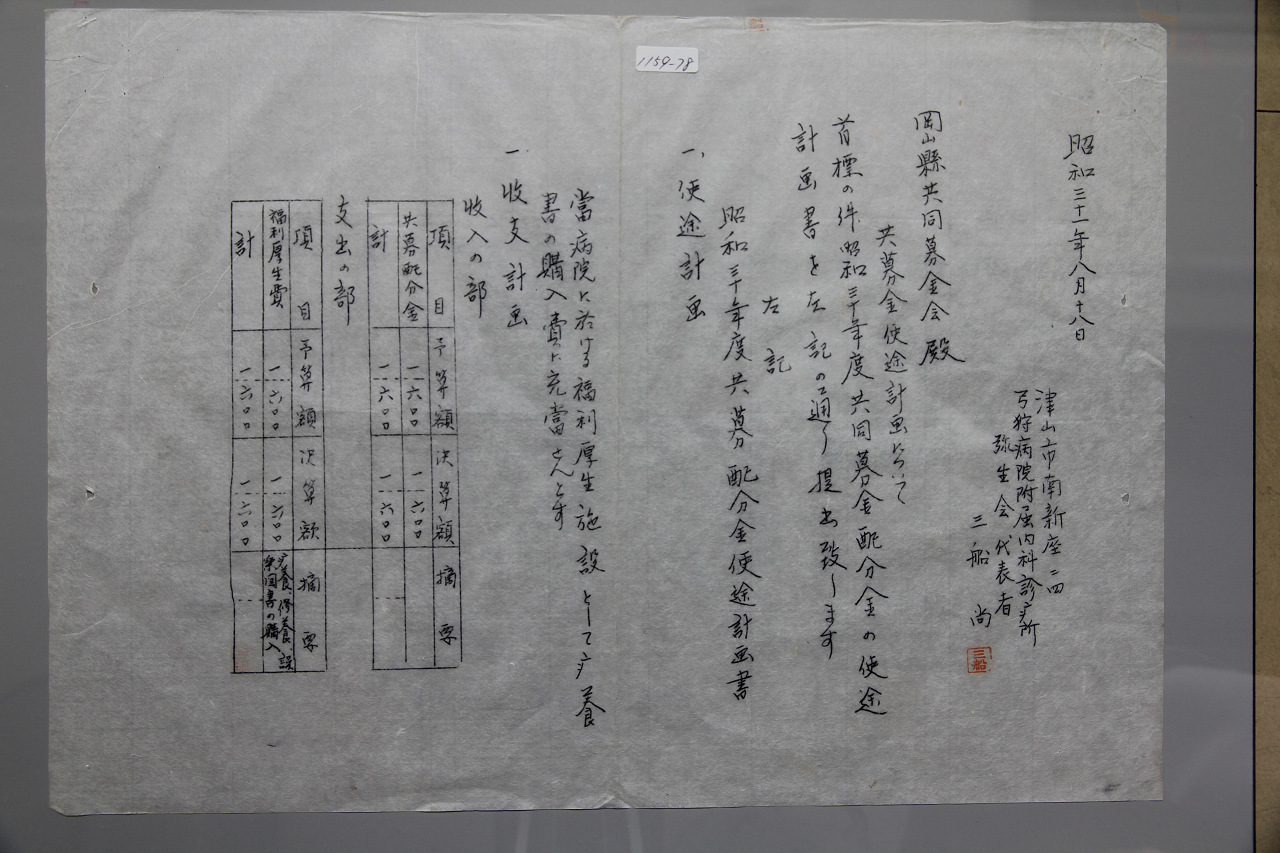 1159-78
昭和三十一年八月十八日
津山市南新座二四
弓狩病院附属内科診疗所
弥生会代表者
三船 尚
三船
岡山縣共同募金会殿
共募金使途計画について
首標の件昭和三十年度共同募金配分金の使途
計画書を左記の通り提出致します
左記
昭和三十年度共募配分金使途計画書
一、使途計画
當病院に於ける福利厚生施設として疗養
書の購入費に充當せんとす
一 收支計画
收入の部
項目 予算額 決算額 摘要
共募配分金 一六〇〇 一六〇〇
計 一六〇〇 一六〇〇
支出の部
項目 予算額 決算額 摘要
福利厚生費 一六〇〇 一六〇〇 疗養、修養、娯楽図書の購入
計 一六〇〇 一六〇〇